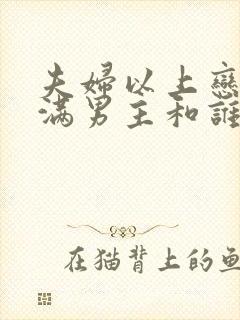 夫婦以上戀
满男主和誰
在猫背上的鱼